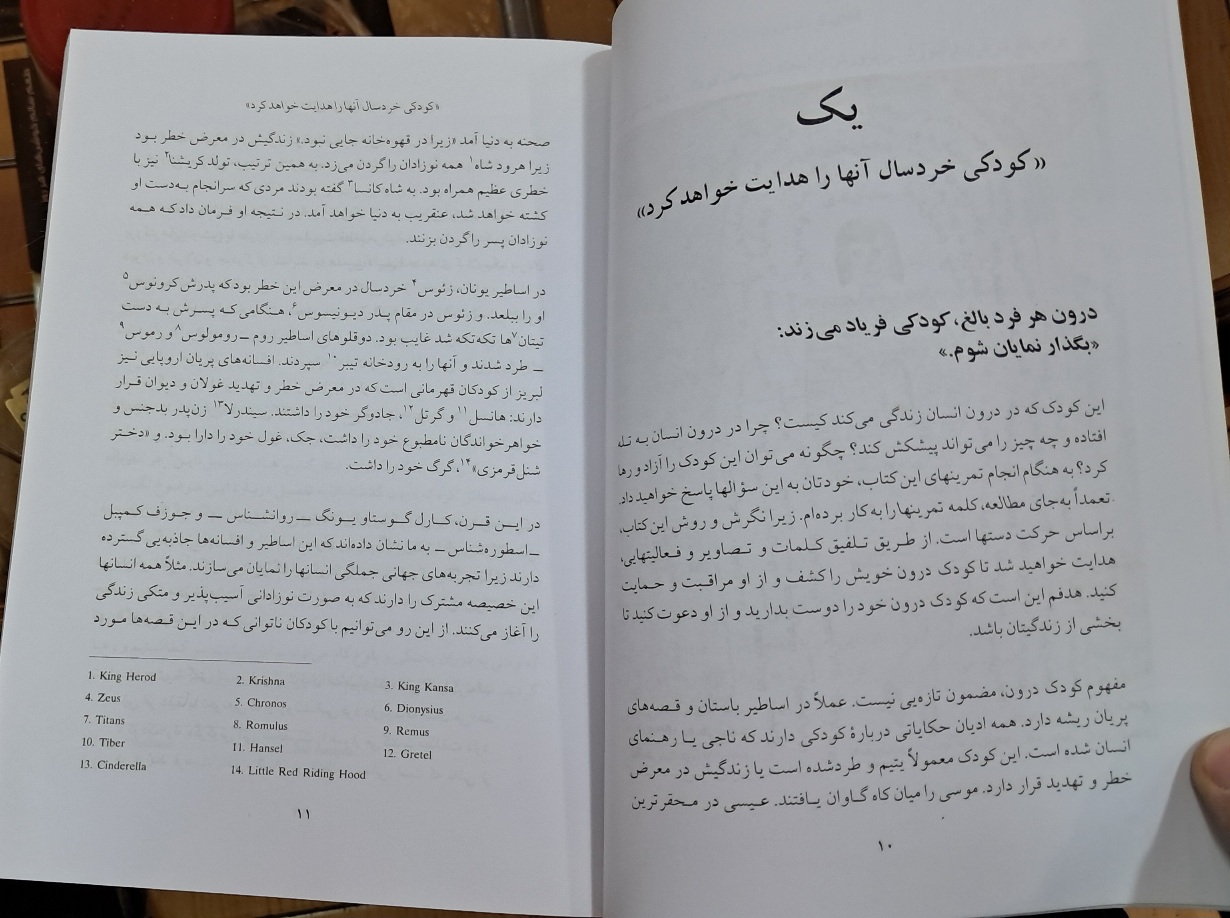 یک
«کودکی خردسال آنها را هدایت خواهد کرد»
درون هر فرد بالغ، کودکی فریاد می‌زند:
«بگذار نمایان شوم.»
این کودک که در درون انسان زندگی می‌کند کیست؟ چرا در درون انسان به تله
افتاده و چه چیز را می‌تواند پیشکش کند؟ چگونه می‌توان این کودک را آزاد و رها
کرد؟ به هنگام انجام تمرینهای این کتاب، خودتان به این سؤالها پاسخ خواهید داد.
تعمداً به‌جای مطالعه، کلمه تمرینها را به کار برده‌ام. زیرا نگرش و روش این کتاب،
براساس حرکت دستها است. از طریق تلفیق کلمات و تصاویر و فعالیتهایی،
هدایت خواهید شد تا کودک درون خویش را کشف و از او مراقبت و حمایت
کنید. هدفم این است که کودک درون خود را دوست بدارید و از او دعوت کنید تا
بخشی از زندگیتان باشد.
مفهوم کودک درون، مضمون تازه‌یی نیست. عملاً در اساطیر باستان و قصه‌های
پریان ریشه دارد. همه ادیان حکایاتی دربارهٔ کودکی دارند که ناجی یا رهنمای
انسان شده است. این کودک معمولاً یتیم و طردشده است یا زندگیش در معرض
خطر و تهدید قرار دارد. موسی را میان کاه گاوان یافتند. عیسی در محقرترین
۱۰
«کودکی خردسال آنها را هدایت خواهد کرد»
صحنه به دنیا آمد «زیرا در قهوه‌خانه جایی نبود.» زندگیش در معرض خطر بود
زیرا هرود شاه۱ همه نوزادان را گردن می‌زد. به همین ترتیب، تولد کریشنا۲ نیز با
خطری عظیم همراه بود. به شاه کانسا۳ گفته بودند مردی که سرانجام به‌دست او
کشته خواهد شد، عنقریب به دنیا خواهد آمد. در نتیجه او فرمان داد که همه
نوزادان پسر را گردن بزنند.
در اساطیر یونان، زئوس۴ خردسال در معرض این خطر بود که پدرش کرونوس۵
او را ببلعد. و زئوس در مقام پدر دیونیسوس۶، هنگامی که پسرش به دست
تیتان۷ها تکه‌تکه شد غایب بود. دوقلوهای اساطیر روم ــ رومولوس۸ و رموس۹
ــ طرد شدند و آنها را به رودخانه تیبر۱۰ سپردند. افسانه‌های پریان اروپایی نیز
لبریز از کودکان قهرمانی است که در معرض خطر و تهدید غولان و دیوان قرار
دارند: هانسل۱۱ و گرتل۱۲، جادوگر خود را داشتند. سیندرلا۱۳ زن‌پدر بدجنس و
خواهرخواندگان نامطبوع خود را داشت، جک، غول خود را دارا بود. و «دختر
شنل‌قرمزی»۱۴، گرگ خود را داشت.
در این قرن، کارل گوستاو یونگ ــ روانشناس ــ و جوزف کمپبل
ــ اسطوره‌شناس ــ به ما نشان داده‌اند که این اساطیر و افسانه‌ها جاذبه‌یی گسترده
دارند زیرا تجربه‌های جهانی جملگی انسانها را نمایان می‌سازند. مثلاً همه انسانها
این خصیصه مشترک را دارند که به صورت نوزادانی آسیب‌پذیر و متکی زندگی
را آغاز می‌کنند. از این رو می‌توانیم با کودکان ناتوانی که در این قصه‌ها مورد
1. King Herod 2. Krishna 3. King Kansa
4. Zeus 5. Chronos 6. Dionysius
7. Titans 8. Romulus 9. Remus
10. Tiber 11. Hansel 12. Gretel
13. Cinderella 14. Little Red Riding Hood
۱۱